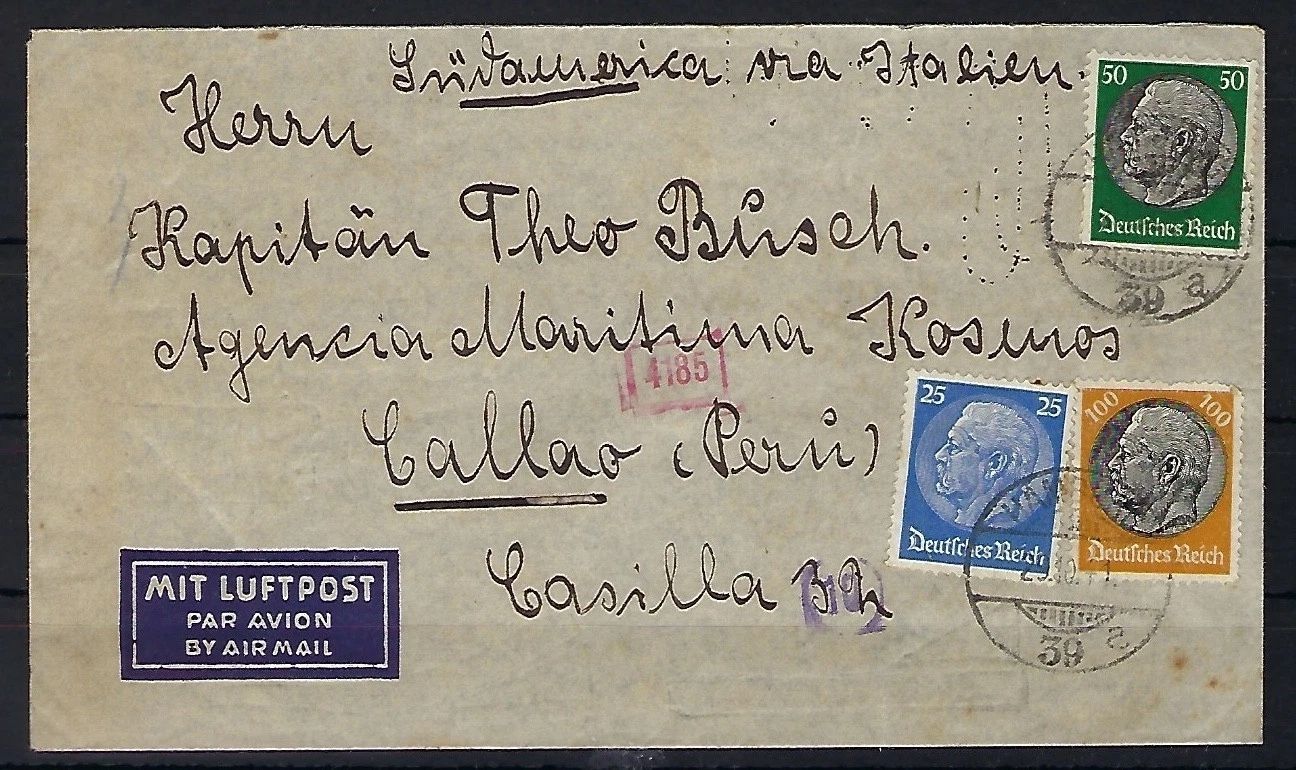 Südamerica via Italien.
Herrn
Kapitän Theo Busch.
Agencia Maritima Kosmos
Callao (Perú)
Casilla 32
4185
50 50
Deutsches Reich
39 a
25 25
Deutsches Reich
100 100
Deutsches Reich
39 a
MIT LUFTPOST
PAR AVION
BY AIR MAIL